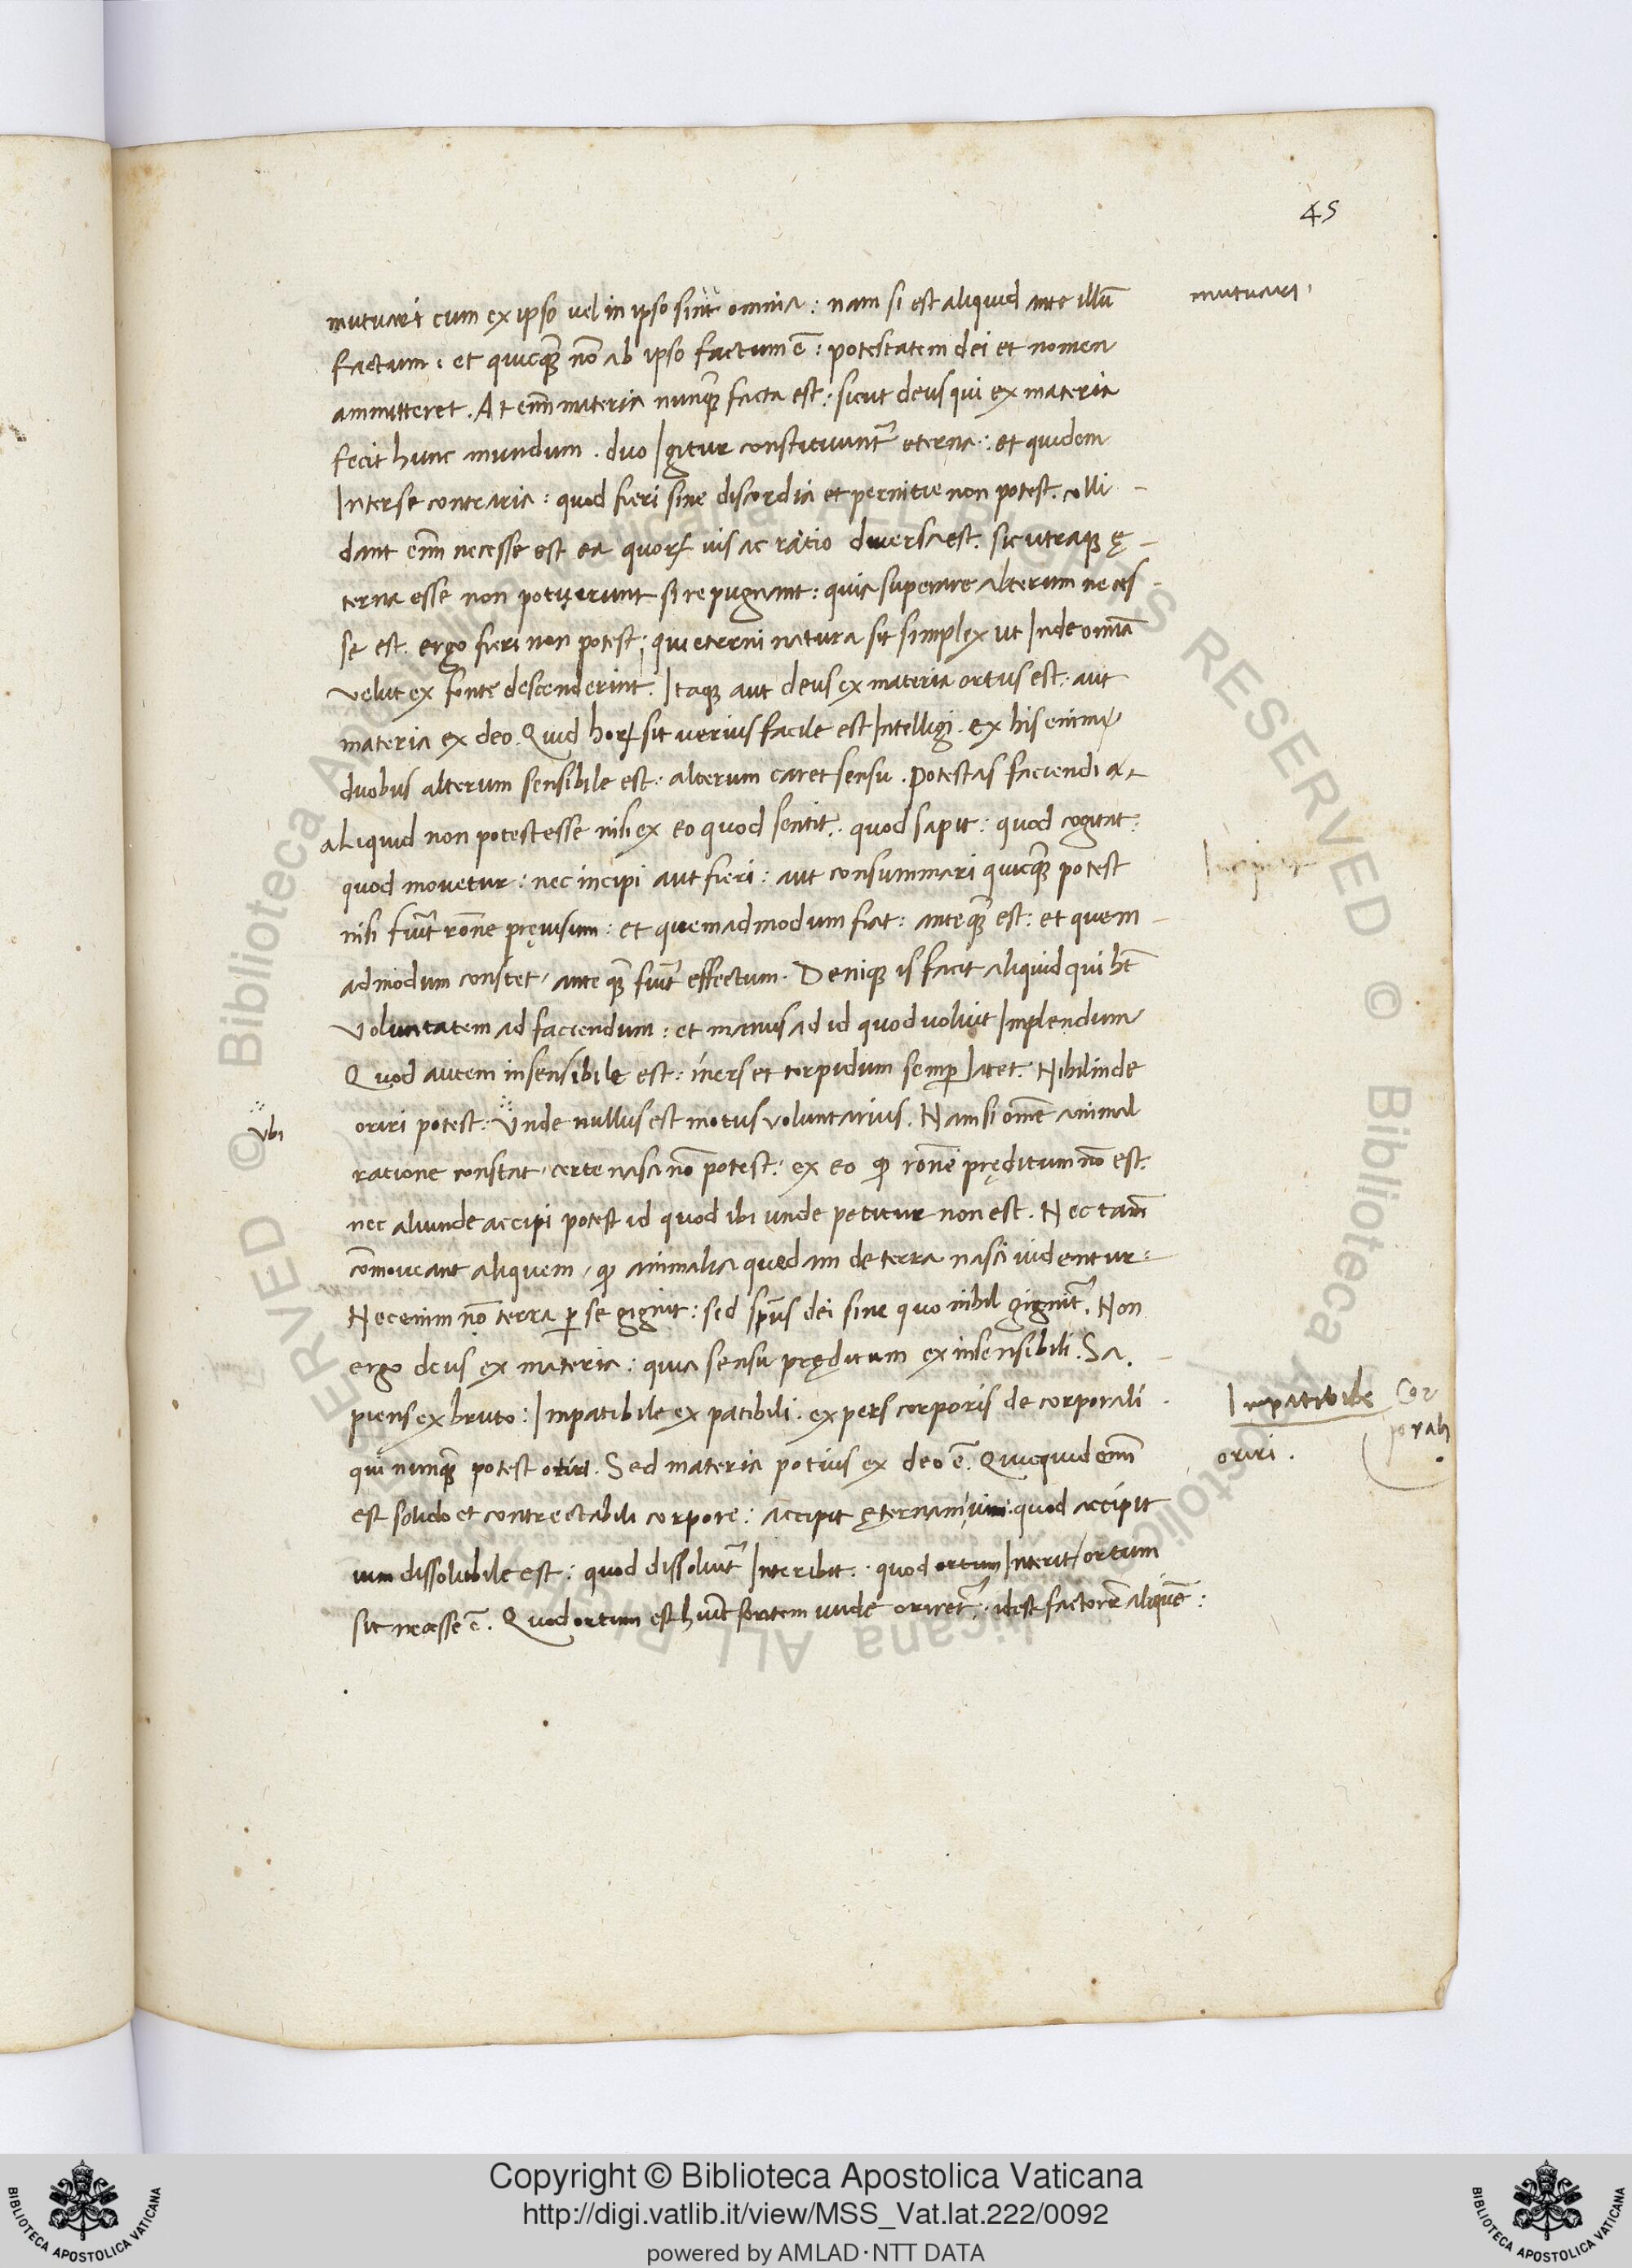 45
mutuari cum ex ipso uel in ipso sint omnia: nam si est aliquid ante illũ
mutuari.
factum: et quicq̃ nõ ab ipso factum ẽ: potestatem dei et nomen
ammitteret. At enĩ materia nunq̃ facta est: sicut deus qui ex materia
fecit hunc mundum. duo Igitur constituunt̃ eterna: et quidem
Inter se contraria: quod fieri sine discordia et pernitie non potest. colli-
dant enĩ necesse est ea quorꝝ uis ac ratio diuersa est. sic utraqꝫ ę-
terna esse non potuerunt si repugnant: quia superare alterum neces-
se est. ergo fieri non potest: qui eterni natura sit simplex ut Inde omĩa
velut ex fonte descenderint. Itaqꝫ aut deus ex materia ortus est: aut
materia ex deo. Quid horꝝ sit uerius facile est Intelligi. ex his enim
duobus alterum sensibile est: alterum caret sensu. potestas faciendi a-
aliquid non potest esse nisi ex eo quod sentit: quod sapit: quod cogitat:
quod mouetur: nec incipi aut fieri: aut consummari quicq̃ potest
nisi fuit̃ rõne pręuisum: et quemadmodum fiat: anteq̃ est: et quem-
admodum constet, ante q̃ fuit̃ effectum. Deniqꝫ is facit aliquid qui ht̃
voluntatem ad faciendum: et manus ad id quod uoluit Implendum
Quod autem insensibile est: iners et torpidum semꝑ Iacet. Nihil inde
oriri potest: Unde nullus est motus voluntarius. Nam si omẽ animal
vbi
ratione constat, certe nasci nõ potest: ex eo qđ rõne pręditum nõ est.
nec aliunde accipi potest id quod ibi unde petitur non est. Nec tam̃
cõmoueant aliquem, qđ animalia quędam de terra nasci uidentur:
Nec enim nõ terra ꝑ se gignit: sed spũs dei sine quo nihil gignit̃. Non
ergo deus ex materia: quia sensu pręditum ex insensibili. Sa-
piens ex bruto: Impatibile ex patibili. expers corporis de corporali
Impatibile Cor
porali
qui nunq̃ potest oriri. Sed materia potius ex deo ẽ. Quicquid enĩ
oriri.
est solido et contrectabili corpore: accipit ęternam uim: quod accipit
uim dissolubile est: quod dissoluit̃ Interibit: quod ortum Interit, ortum
sit necesse ẽ. Quod ortum est huit̃ fontem unde oriret̃: idest factorẽ aliquẽ:
Copyright © Biblioteca Apostolica Vaticana
http://digi.vatlib.it/view/MSS_Vat.lat.222/0092
powered by AMLAD·NTT DATA
BIBLIOTECA APOSTOLICA VATICANA
BIBLIOTECA APOSTOLICA VATICANA